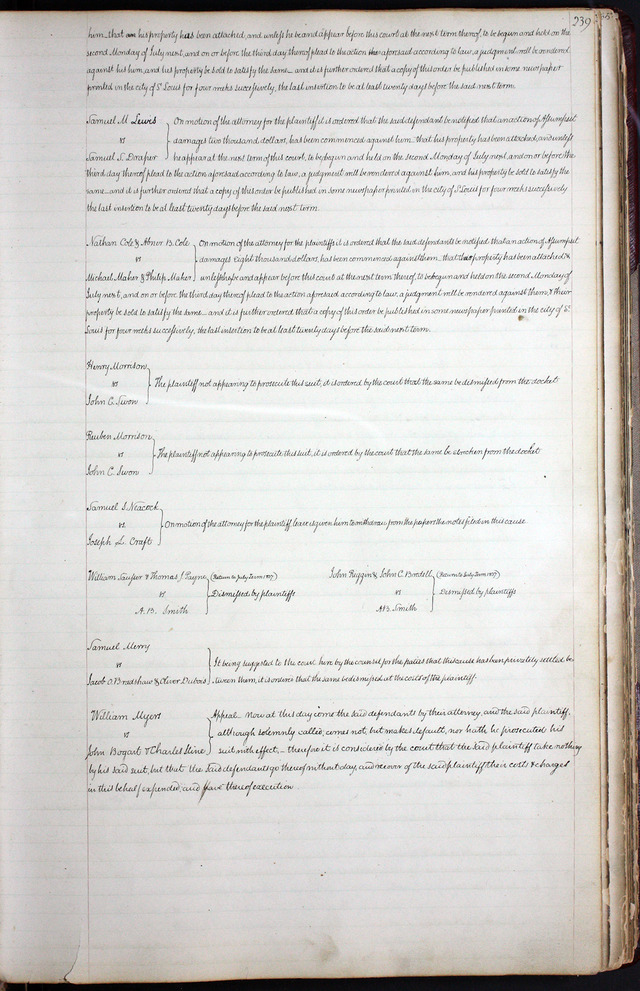 239
him that his property has been attached, and unless he be and appear before this court at the next term thereof, to be begun and held on the
second Monday of July next, and on or before the third day thereof plead to the action aforesaid according to law, a judgment will be rendered
against him, and his property be sold to satisfy the same_ and it is further ordered that a copy of this order be published in some newspaper
printed in the city of St Louis for four weeks successively, the last insertion to be at least twenty days before the said next term.
Samuel M Lewis
vs
Samuel S. Draper
On motion of the attorney for the plaintiff it is ordered that the said defendant be notified that an action of Assumpsit
damages two thousand dollars, has been commenced against him_ that his property has been attached, and unless
he appear at the next term of this court, to be begun and held on the second Monday of July next, and on or before the
third day thereof plead to the action aforesaid according to law, a judgment will be rendered against him, and his property be sold to satisfy the
same_ and it is further ordered that a copy of this order be published in some newspaper printed in the city of St Louis for four weeks successively
the last insertion to be at least twenty days before the said next term.
Nathan Cole & Abner B. Cole
vs
Michael Maher & Philip Maher
On motion of the attorney for the plaintiffs it is ordered that the said defendants be notified that an action of Assumpsit
damages Eight thousand dollars, has been commenced against them_ that their property has been attached, &
unless they be and appear before this court at the next term thereof, to be begun and held on the second Monday of
July next, and on or before the third day thereof plead to the action aforesaid according to law, a judgment will be rendered against them, & their
property be sold to satisfy the same_ and it is further ordered that a copy of this order be published in some newspaper printed in the city of St
Louis for four weeks successively, the last insertion to be at least twenty days before the said next term.
Henry Morrison
vs
John C. Swon
The plaintiff not appearing to prosecute this suit, it is ordered by the court that the same be dismissed from the docket
Reuben Morrison
vs
John C. Swon
The plaintiff not appearing to prosecute this suit, it is ordered by the court that the same be stricken from the docket
Samuel S. Neacock
vs
Joseph L. Craft
On motion of the attorney for the plaintiff leave is given him to withdraw from the papers the notes filed in this cause
William Saufser & Thomas J. Payne
vs
A. B. Smith
(Return to July Term 1837)
Dismissed by plaintiffs
John Riggin & John C. Bredell
vs
A B. Smith
(Return to July Term 1837)
Dismissed by plaintiffs
Samuel Merry
vs
Jacob O. Bradshaw & Oliver Dubois
It being suggested to the court here by the counsel for the parties that this cause has been privately settled be
tween them, it is ordered that the same be dismissed at the costs of the plaintiff.
William Myers
vs
John Bogart & Charles Stine
Appeal_ Now at this day come the said defendants by their attorney, and the said plaintiff,
although solemnly called, comes not, but makes default, nor hath he prosecuted his
suit with effect,_ therefore it is considered by the court that the said plaintiff take nothing
by his said suit, but that the said defendants go thereof without day, and recover of the said plaintiff their costs & charges
in this behalf expended, and have thereof execution.